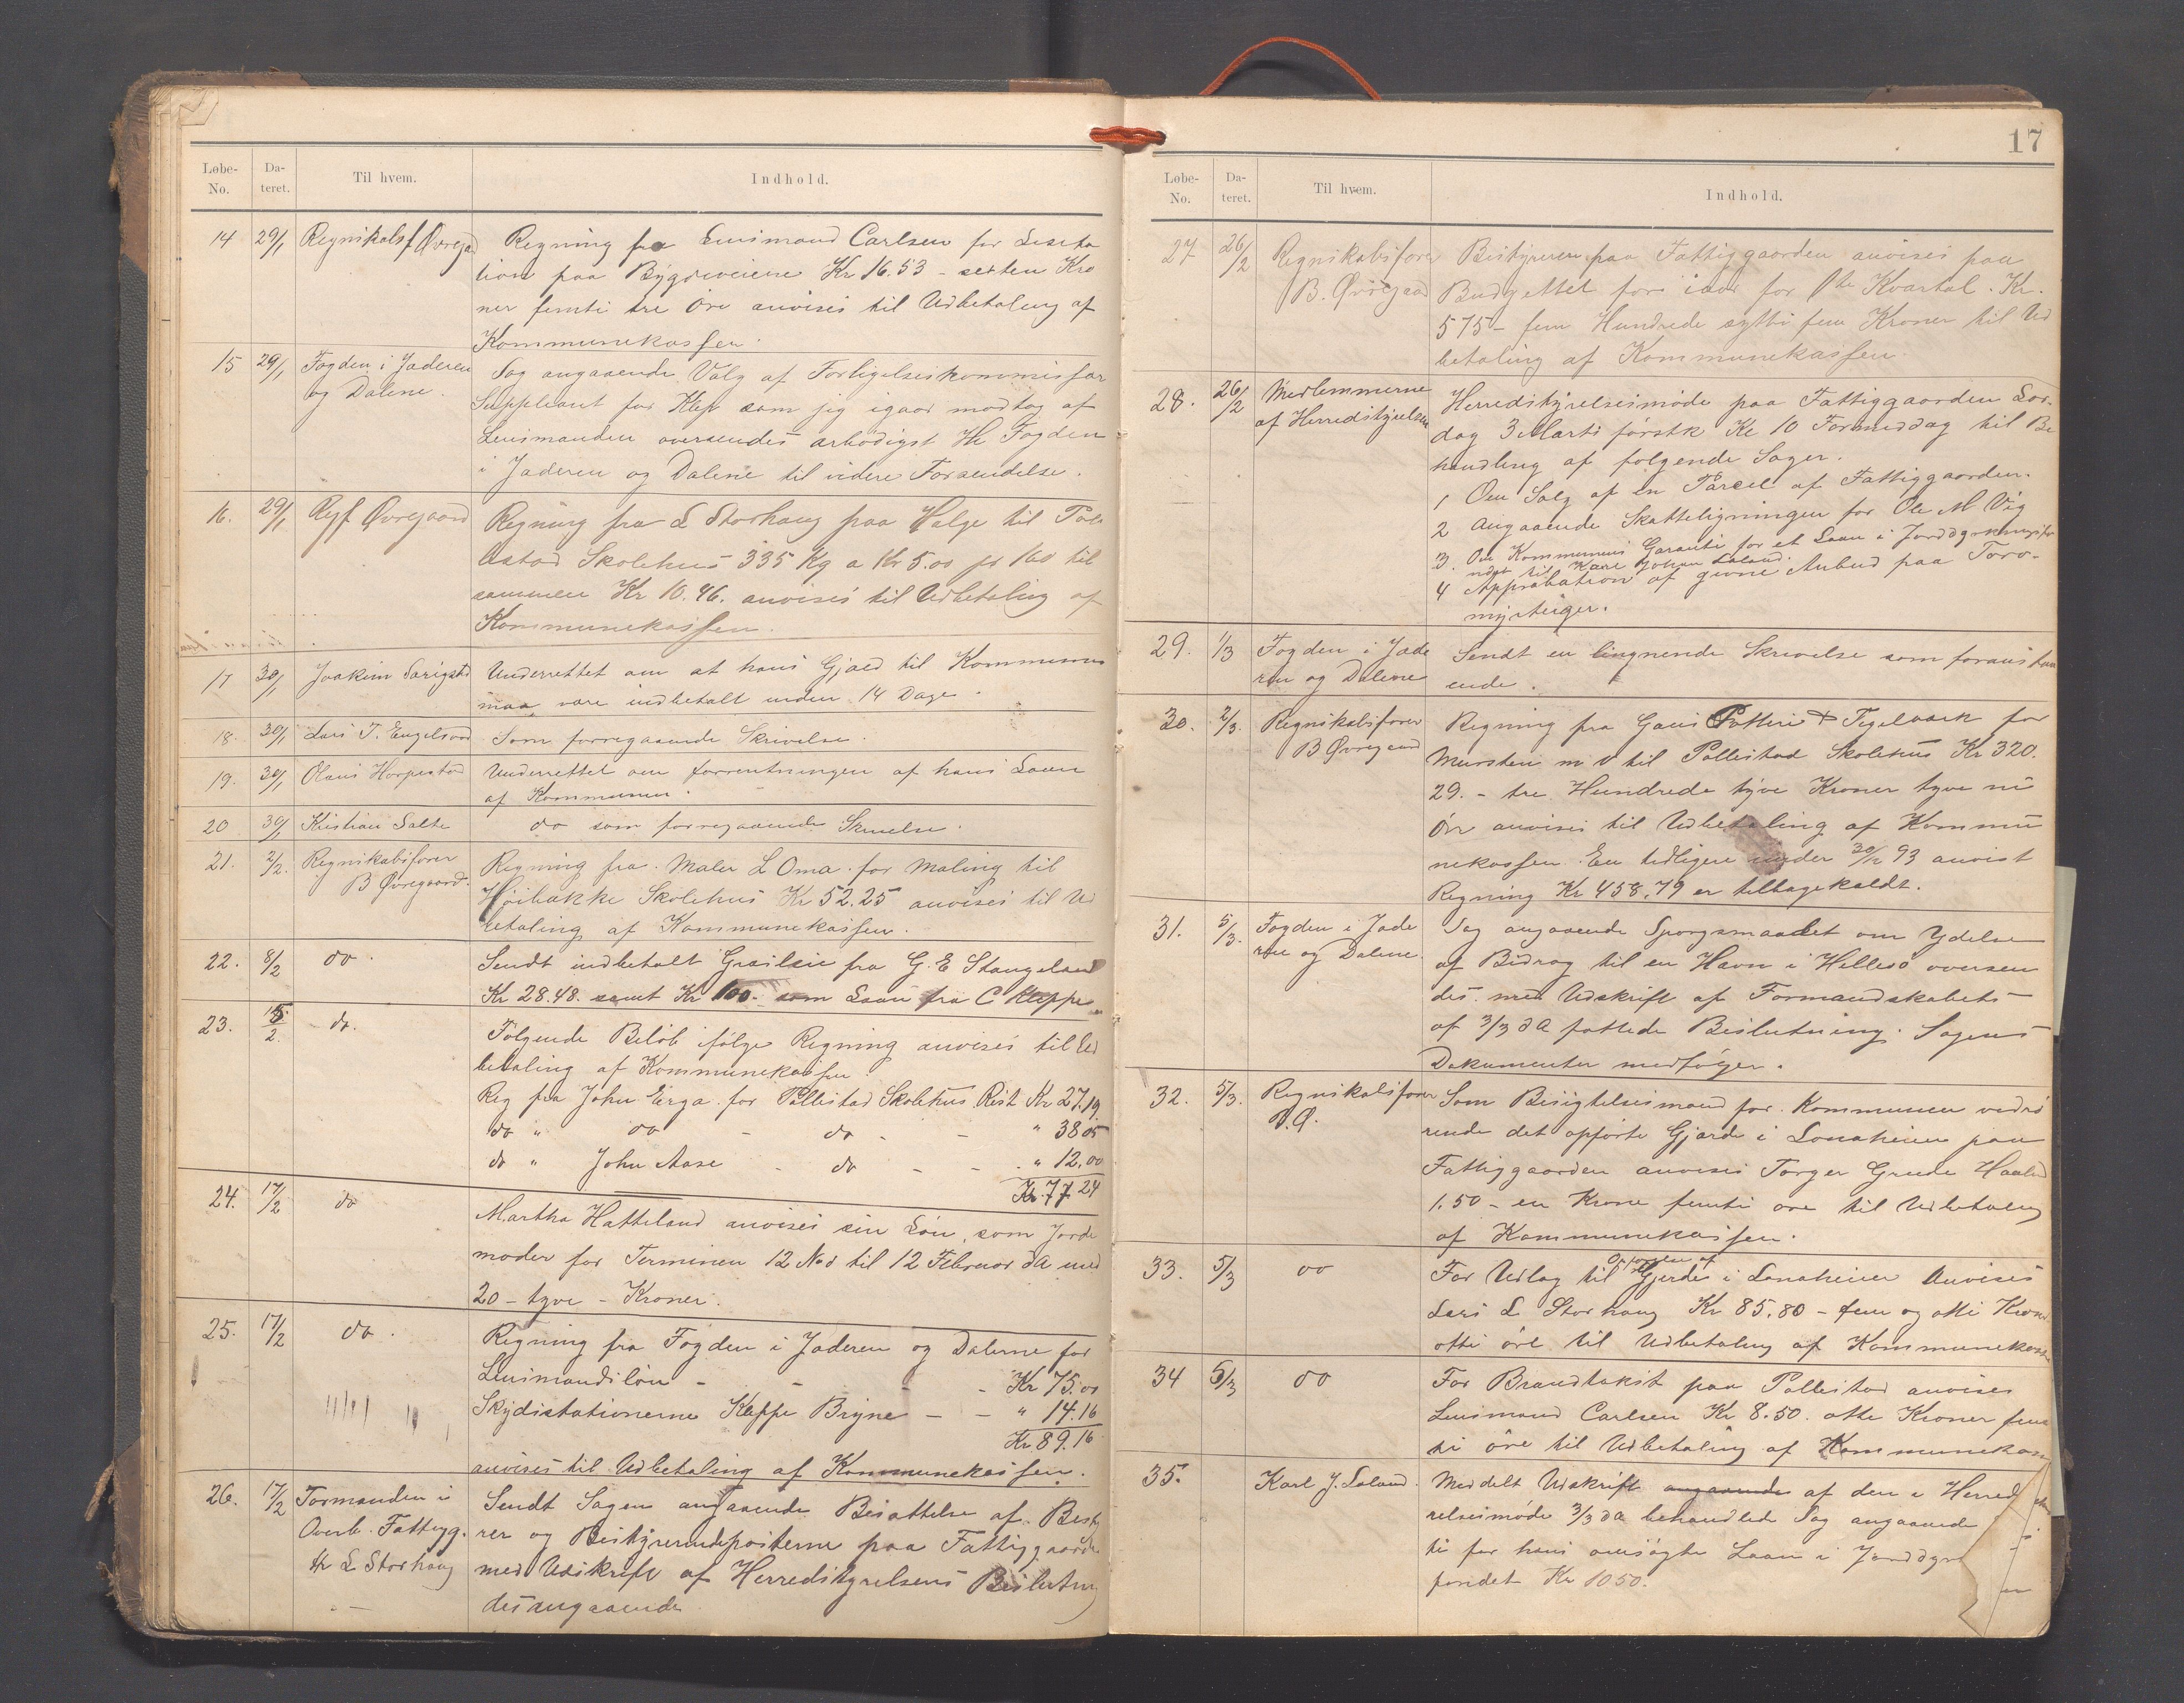 Løbe-No. Da-teret. Til hvem. Indhold.
14 29/1 Regnskabsf Øvregaard Regning fra Lensmand Carlsen for
tion paa Bygdeveiene Kr 16.53 - sexten Kro
ner femti tre Øre anvises til Udbetaling af
Kommunekassen.
15 29/1 Fogden i Jæderen og Dalene. Sag angaaende Valg af Forligelseskommissær
Suppleant for Klep som jeg igaar modtog af
Lensmanden oversendes ærbødigst Hr Fogden
i Jæderen og Dalene til videre Forsendelse.
16. 29/1 Rgf Øvregaard Regning fra L Storhaug paa Halge til
Skolehus 335 Kg a Kr 5.00 pr 160 til
sammen Kr 10.46. anvises til Udbetaling af
Kommunekassen.
17 30/1 Joakim Underrettet om at hans Gjæld til Kommunen
maa være indbetalt inden 14 Dage.
18. 30/1 Lars T. Engelsvold Som forregaaende Skrivelse.
19. 30/1 Olaus Horpestad Underrettet om forrentningen af hans Laan
af Kommunen.
20 30/1 Kristian Salte do som forregaaende Skrivelse.
21. 2/2. Regnskabsfører B Øvregaard. Regning fra Maler L Oma for Maling til
Høibakke Skolehus Kr 52.25 anvises til Ud
betaling af Kommunekassen.
22. 8/2 do. Sendt indbetalt fra G. E Stangeland
Kr 28.48. samt Kr 100.- som Laan fra C Kleppe
23. 15/2. do. Følgende Beløb ifølge Regning anvises til Ud
betaling af Kommunekassen.
Reg fra John Erga for Pollestad Skolehus Rest Kr 27.19
do " do - do - - " 38 05
do " John Aase - do - - " 12.00
Kr. 77 24
24. 17/2 do Martha Hatteland anvises sin Løn som Jorde
moder for Terminen 12 Nov til 12 Februar dA med
20 - tyve - Kroner.
25. 17/2 do. Regning fra Fogden i Jæderen og Dalerne for
Lensmandsløn - - - - Kr 75.00
Skydsstationerne Kleppe Bryne - - " 14.16
Kr 89.16
anvises til Udbetaling af Kommunekassen.
26. 17/2 Formanden i Overb. Fattigg. hr L Storhaug Sendt Sagen angaaende Besættelse af Besty
rer og Bestyrerindeposterne paa Fattiggaarden
med Udskrift af Herredstyrelsens Beslutning
desangaaende.
17
Løbe-No. Da-teret. Til hvem. Indhold.
27 26/2 Regnskabsfører B. Øvregaard Bestyreren paa Fattiggaarden anvises paa
Budgettet for iaar for 1ste Kvartal. Kr.
575 - fem Hundrede sytti fem Kroner til Ud
betaling af Kommunekassen.
28. 26/2 Medlemmerne af Herredstyrelsen Herredstyrelsesmøde paa Fattiggaarden Lør-
dag 3 Marts førstk Kl 10 Formiddag til Be
handling af følgende Sager.
1 Om Salg af en Parcel af Fattiggaarden.
2 Angaaende Skatteligningen for Ole M Vig
3. Om Kommunens Garanti for et Laan i Jorddyrkningsfo
ndet til Karl Johan Laland.
4 Approbation af givne Anbud paa Torv-
myrteiger.
29. 1/3 Fogden i Jæde ren og Dalerne Sendt en lignende Skrivelse som foranstaa
ende.
30. 2/3. Regnskabsfører B Øvregaard Regning fra Gans Potteri & Teglværk for
Mursten m v til Pollestad Skolehus Kr 320.
29. - tre Hundrede tyve Kroner tyve ni
Øre anvises til Udbetaling af Kommu
nekassen. En tidligere under 30/12 93 anvist
Regning Kr 458.79 er tilbagekaldt.
31. 5/3. Fogden i Jæde ren og Dalerne. Sag angaaende Spørgsmaalet om Ydelse
af Bidrag til en Havn i Hellesø oversen
des med Udskrift af Formandskabets
af 3/3 dA fattede Beslutning. Sagens
Dokumenter medfølger.
32. 5/3. Regnskabsfører B.Ø. Som Besigtelsesmand for Kommunen vedrø
rende det opførte Gjærde i Lonaheien paa
Fattiggaarden anvises Torger Grude Haaland
1.50 - en Krone femti øre til Udbetaling
af Kommunekassen.
33. 5/3 do For Udlæg til Opførelsen af Gjerde i Lonaheien Anvises
Lars L Storhaug Kr 85.80 - fem og otti Kroner
otti øre til Udbetaling af Kommunekassen
34 5/3 do For Brandtakst paa Pollestad anvises
Lensmand Carlsen Kr 8.50. otte Kroner fem
ti øre til Udbetaling af Kommunekassen
35. Karl J. Laland. Meddelt Udskrift angaaende af den i Herred
relsesmøde 3/3 dA behandlede Sag angaaende
ti for hans ansøgte Laan i Jorddyr
fondet Kr 1050.